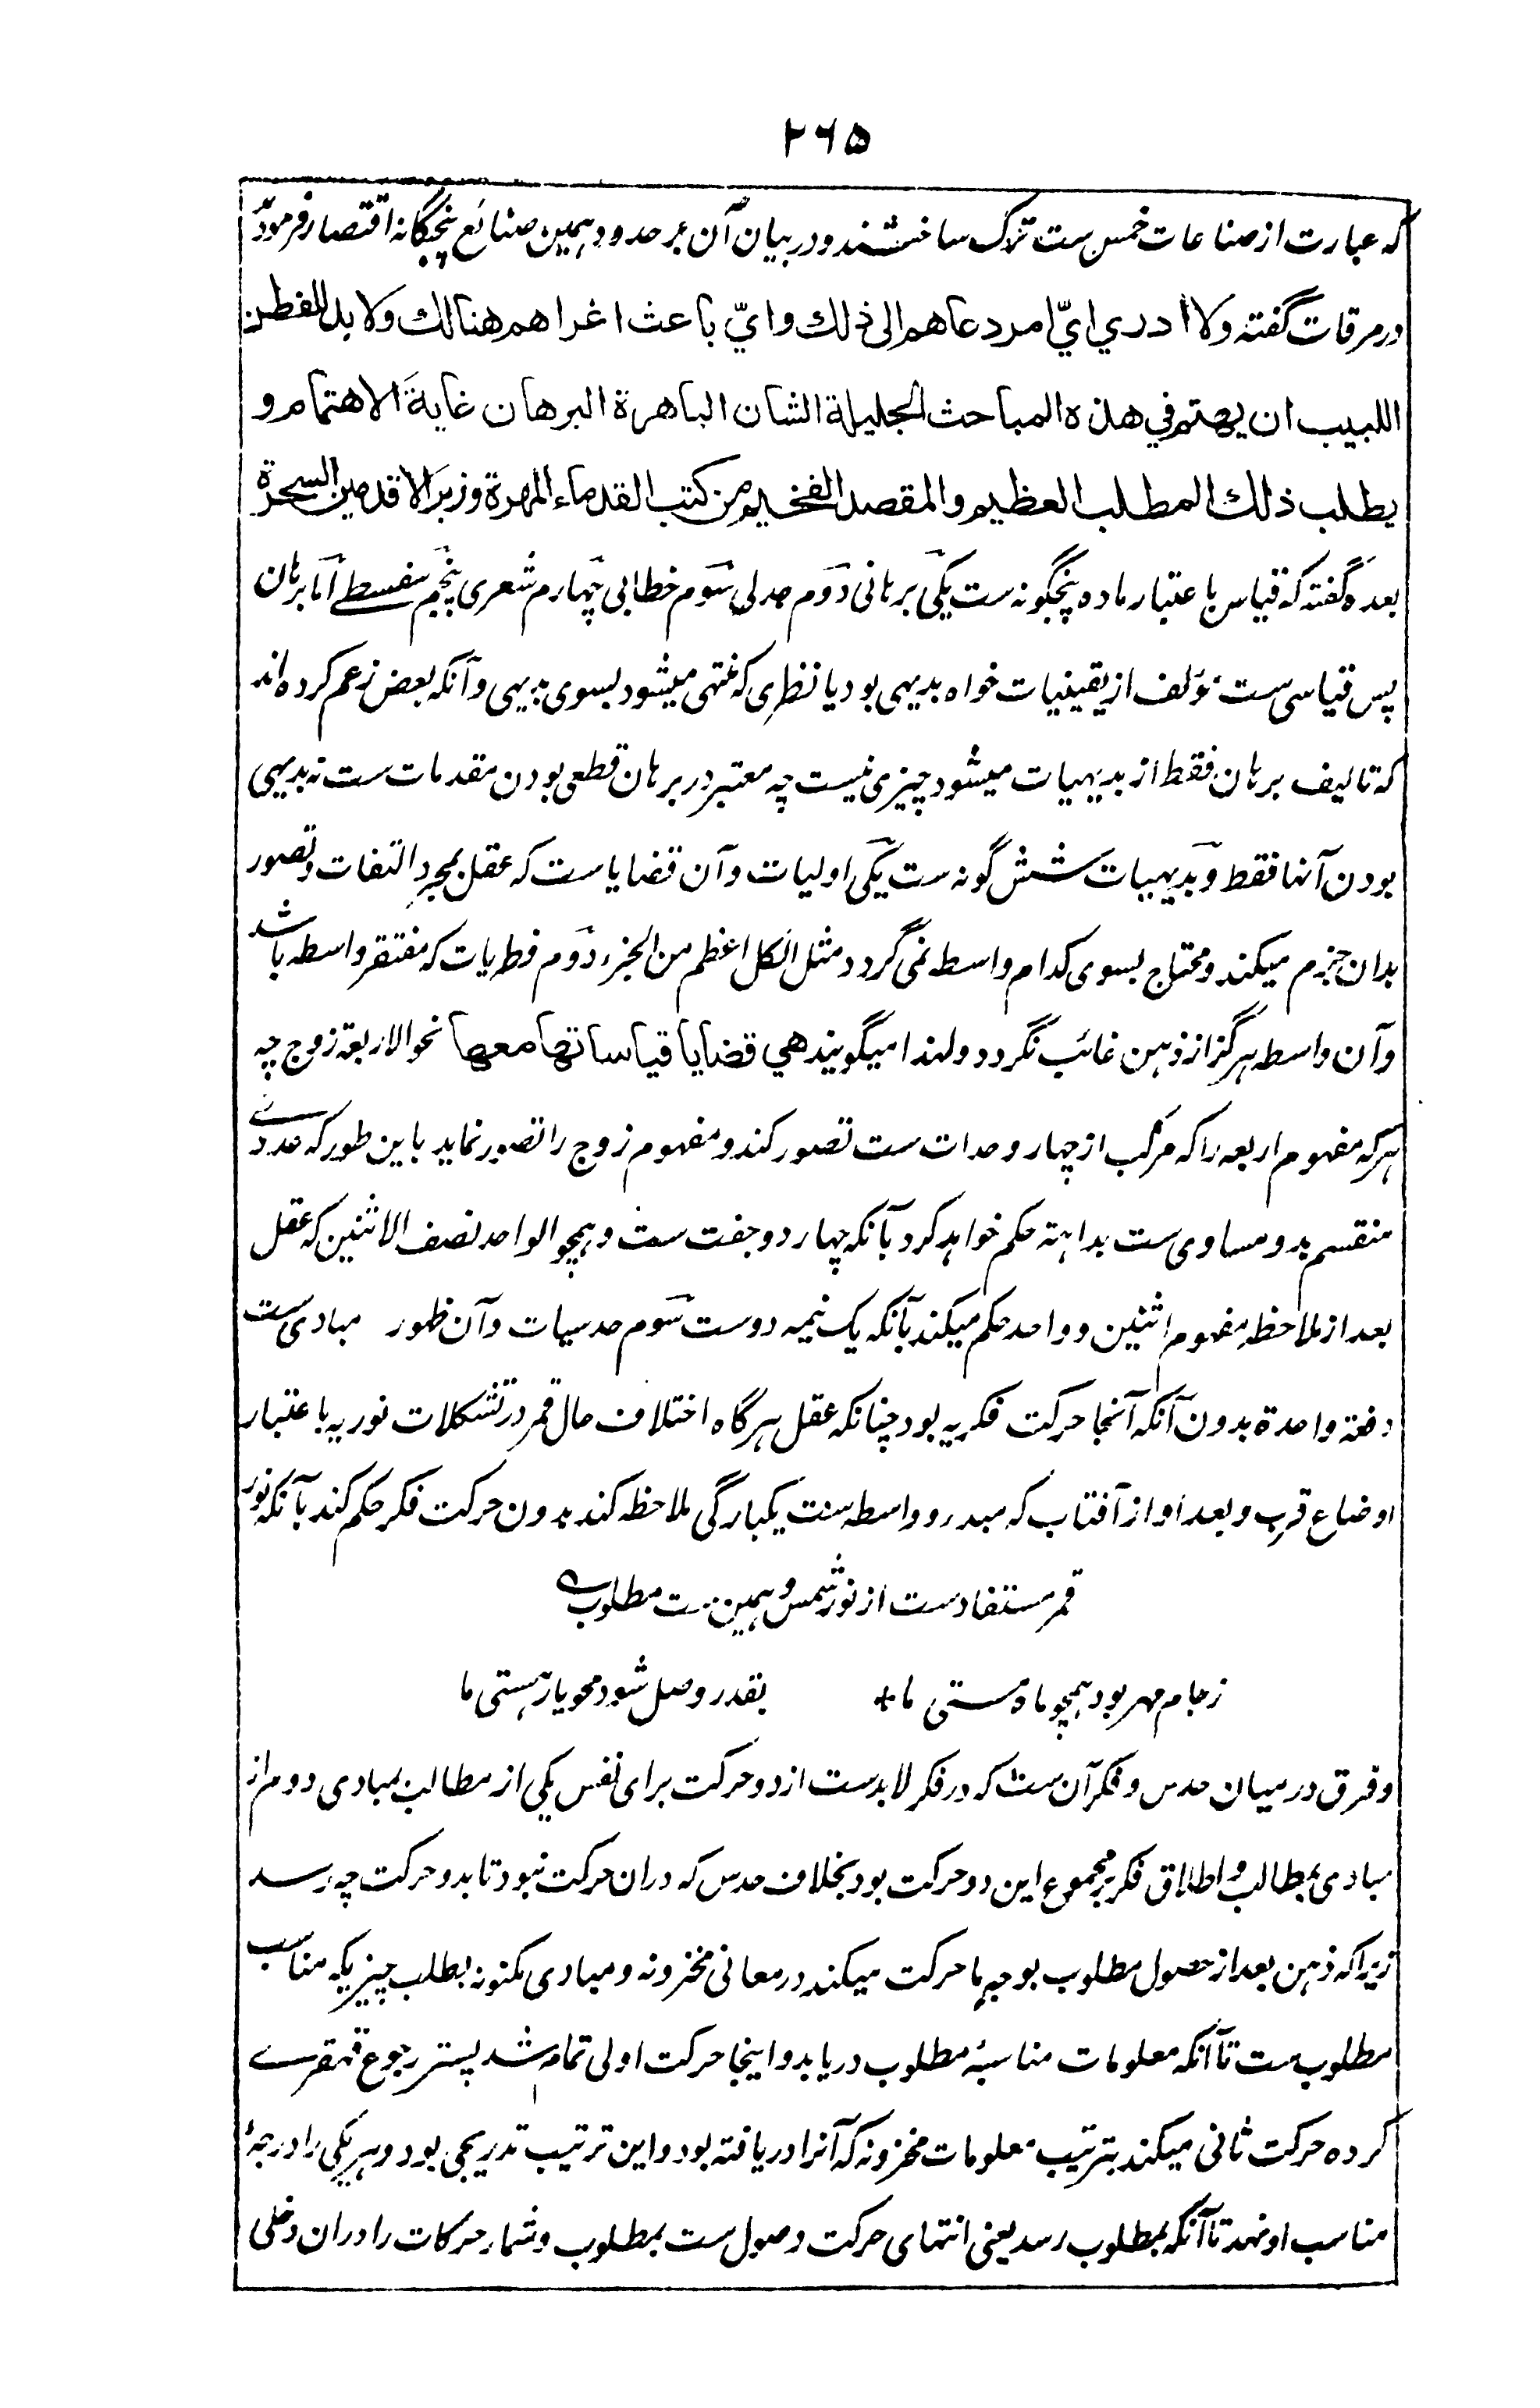 ۲۶۵
که عبارت از صناعات خمس ست ترک ساختند و در بیان آن بر حدود همین صنائع پنجگانه اقتصار فرمودند
در مرقات گفته ولا ادري ايّ امر دعاهم الى ذلك وايّ باعث اغراهم هنالك ولا بد للفطن
اللبيب ان يهتم في هذه المباحث الجليلة الشان الباهرة البرهان غاية الاهتمام و
يطلب ذلك المطلب العظيم والمقصد الفخيم من كتب القدماء المهرة وزبر الاقدمين السحرة
بعده گفته که قیاس باعتبار ماده پنجگونه ست یکی برهانی دوم جدلی سوم خطابی چهارم شعری پنجم سفسطے اما برهان
پس قیاسی ست مؤلف از یقینیات خواه بدیهی بود یا نظری که منتهی میشود بسوی بدیهی و آنکه بعض زعم کرده اند
که تالیف برهان فقط از بدیهیات میشود چیزی نیست چه معتبر در برهان قطعی بودن مقدمات ست نه بدیهی
بودن آنها فقط و بدیهیات شش گونه ست یکی اولیات و آن قضایا ست که عقل بمجرد التفات و تصور
بدان جزم میکند و محتاج بسوی کدام واسطه نمی گردد مثل الکل اعظم من الجزء دوم فطریات که مفتقر واسطه باشد
و آن واسطه هرگز از ذهن غائب نگردد و لهذا میگویند هي قضايا قياساتها معها نحو الاربعة زوج چه
هر که مفهوم اربعه را که مرکب از چهار وحدات ست تصور کند و مفهوم زوج را تصور نماید باین طور که عددے
منقسم بدو مساوی ست بداهتة حکم خواهد کرد بآنکه چهار دو جفت ست و همچو الواحد نصف الاثنین که عقل
بعد از ملاحظه مفهوم اثنین و واحد حکم میکند بآنکه یک نیمه دوست سوم حدسیات و آن ظهور مبادی ست
دفعة واحدة بدون آنکه آنجا حرکت فکریه بود چنانکه عقل هرگاه اختلاف حال قمر در تشکلات نوریه باعتبار
اوضاع قرب و بعد او از آفتاب که مبدر و واسطه ست یکبارگی ملاحظه کند بدون حرکت فکر حکم کند بآنکه نور
قمر مستفادست از نور شمس و همین ست مطلوب
ز جام مهر بود همچو ماه مستی ما + بقدر وصل شود محو یار هستی ما
و فرق در میان حدس و فکر آن ست که در فکر لابدست از دو حرکت برای نفس یکی از مطالب بمبادی دوم از
مبادی بمطالب و اطلاق فکر بر مجموع این دو حرکت بود بخلاف حدس که دران حرکت نبود تا بدو حرکت چه رسد
زیرا که ذهن بعد از حصول مطلوب بوجهٍ ما حرکت میکند در معانی مخزونه و مبادی مکنونه بطلب چیزیکه مناسب
مطلوب ست تا آنکه معلومات مناسبۀ مطلوب دریابد و اینجا حرکت اولی تمام شد پستر رجوع قهقرے
کرده حرکت ثانی میکند بترتیب معلومات مخزونه که آنرا دریافته بود و این ترتیب تدریجی بود و هر یکی را درجۀ
مناسب او نهد تا آنکه بمطلوب رسد یعنی انتهای حرکت وصول ست بمطلوب و شمار حرکات را دران دخلی